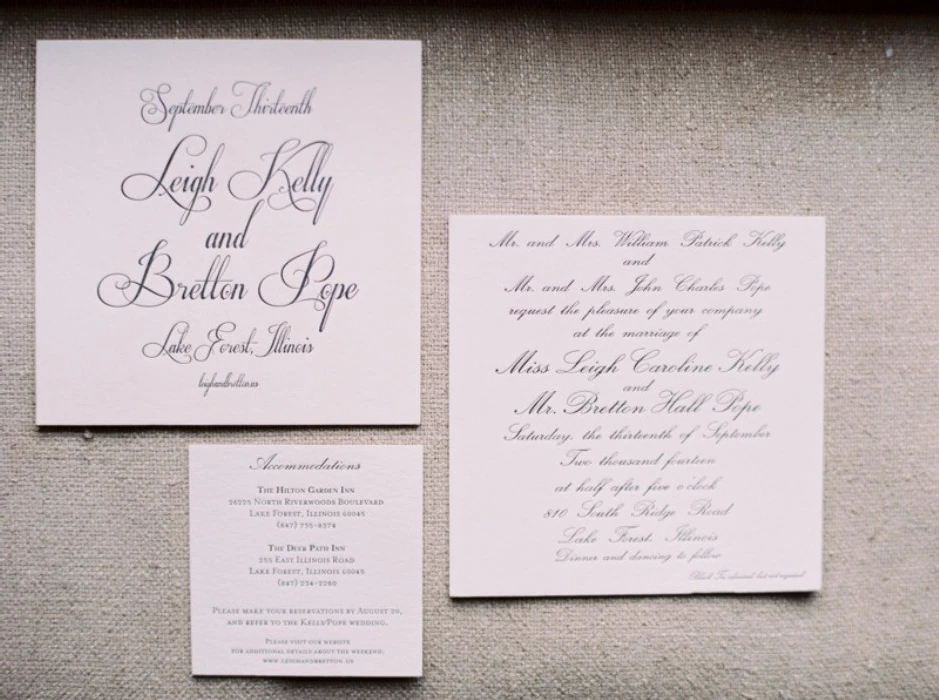 September Thirteenth
Leigh Kelly
and
Bretton Pope
Lake Forest, Illinois
leighandbretton.us
Accommodations
The Hilton Garden Inn
26225 North Riverwoods Boulevard
Lake Forest, Illinois 60045
(847) 735-
The Deer Path Inn
255 East Illinois Road
Lake Forest, Illinois 60045
(847) 234-2280
Please make your reservations by August 20,
and refer to the Kelly/Pope wedding.
Please visit our website
for additional details about the weekend:
www.leighandbretton.us
Mr. and Mrs. William Patrick Kelly
and
Mr. and Mrs. John Charles Pope
request the pleasure of your company
at the marriage of
Miss Leigh Caroline Kelly
and
Mr. Bretton Hall Pope
Saturday, the thirteenth of September
Two thousand fourteen
at half after five o'clock
810 South Ridge Road
Lake Forest, Illinois
Dinner and dancing to follow
Black Tie admired but not required